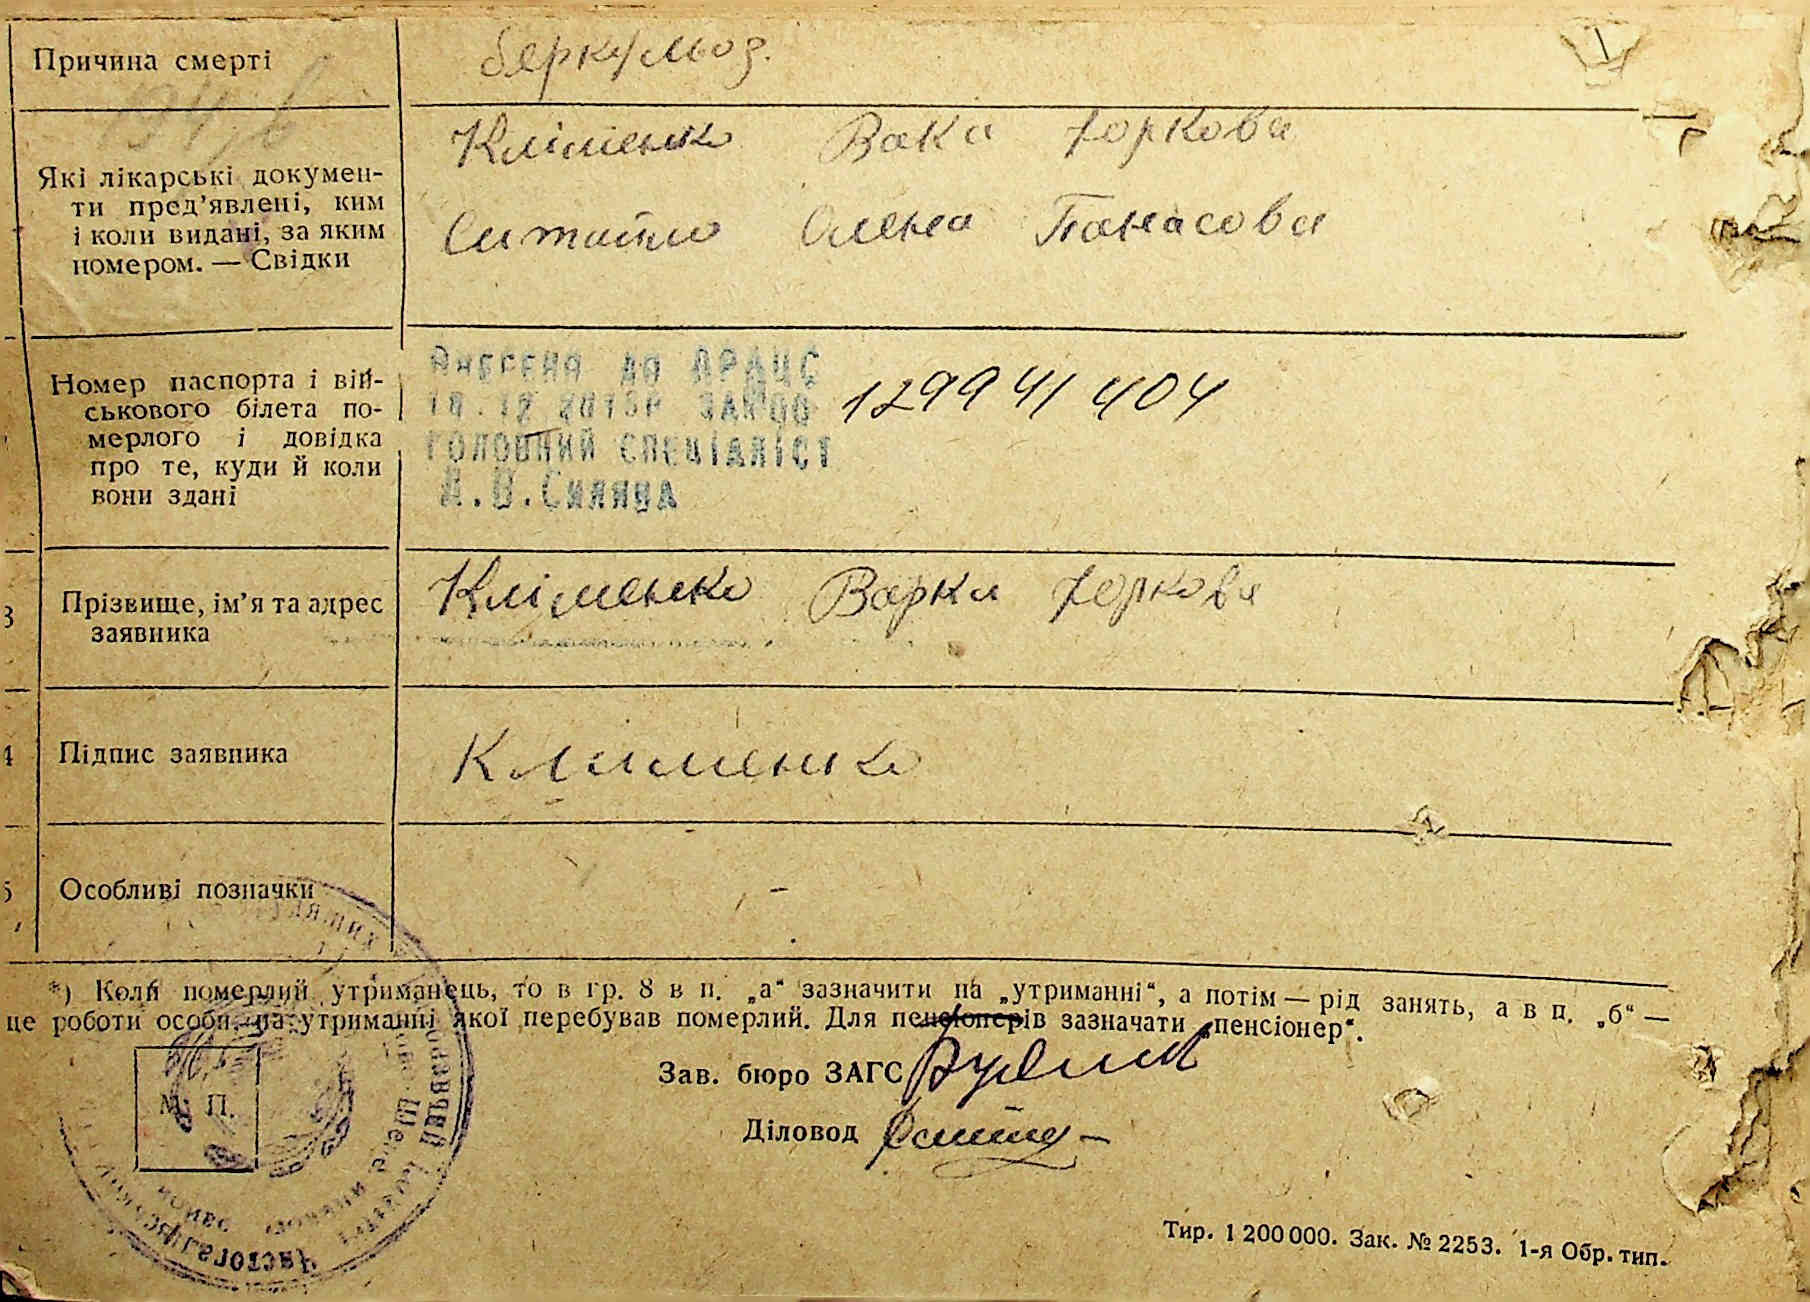 Причина смерті
беркульоз.
Які лікарські докумен-
ти пред'явлені, ким
і коли видані, за яким
номером. — Свідки
Кліменко Вака Юркова
Олена Панасова
Номер паспорта і вій-
ськового білета по-
мерлого і довідка
про те, куди й коли
вони здані
Внесено до ДРАЦС
ГОЛОВНИЙ СПЕЦІАЛІСТ
129941404
3 Прізвище, ім'я та адрес
заявника
Кліменко Варка Юркова
4 Підпис заявника
Клименко
5 Особливі позначки
-
*) Коли померлий утриманець, то в гр. 8 в п. „а“ зазначити на „утриманні“, а потім — рід занять, а в п. „б“ —
це роботи особи, на утриманні якої перебував померлий. Для пенсіонерів зазначати „пенсіонер“.
М. П.
Зав. бюро ЗАГС
Діловод
Тир. 1 200 000. Зак. № 2253. 1-я Обр. тип.